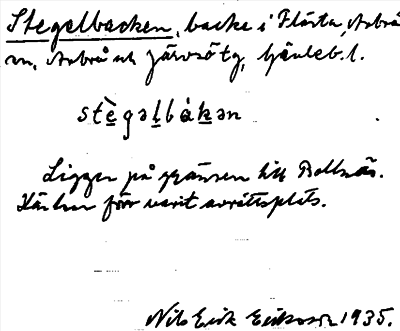 Stegelbacken, backe i Flästa, Arbrå
sn, Arbrå och Järvsö tg, Gävleb. l.
stègəlbákən
Ligger på gränsen till Bollnäs.
Här har förr varit avrättsplats.
Nils Erik Eriksson 1935.